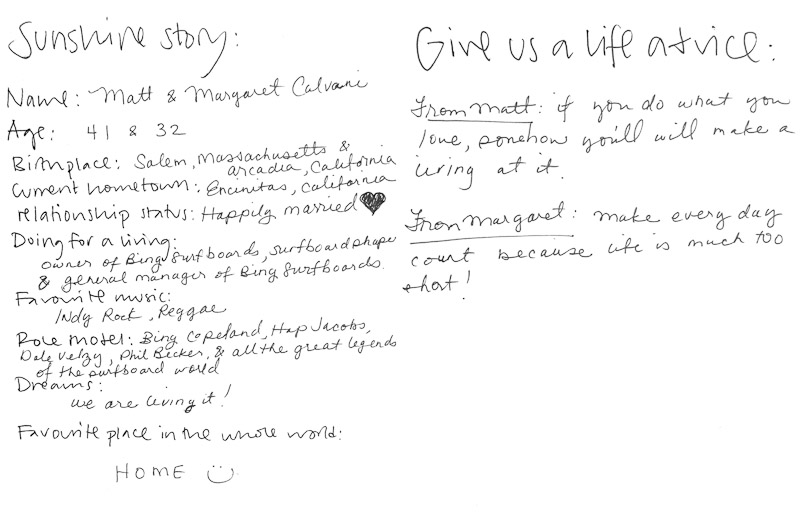 Sunshine story:
Name: Matt & Margaret Calvani
Age: 41 & 32
Birthplace: Salem, Massachusetts &
arcadia, California
Current hometown: Encinitas, California
relationship status: Happily married ♥
Doing for a living:
owner of Bing Surfboards, surfboard shaper
& general manager of Bing Surfboards.
Favourite music:
Indy Rock, Reggae
Role model: Bing Copeland, Hap Jacobs,
Dale Velzy, Phil Becker, & all the great legends
of the surfboard world
Dreams:
we are living it!
Favourite place in the whole world:
HOME ☺
Give us a life advice:
From Matt: if you do what you
love, somehow you'll will make a
living at it.
From Margaret: make every day
count because life is much too
short!